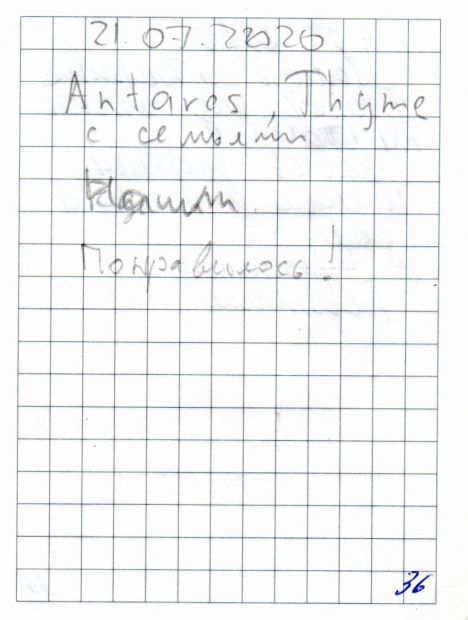 21.07.2020
Antares, Thyme
с семьями
Понравилось!
36